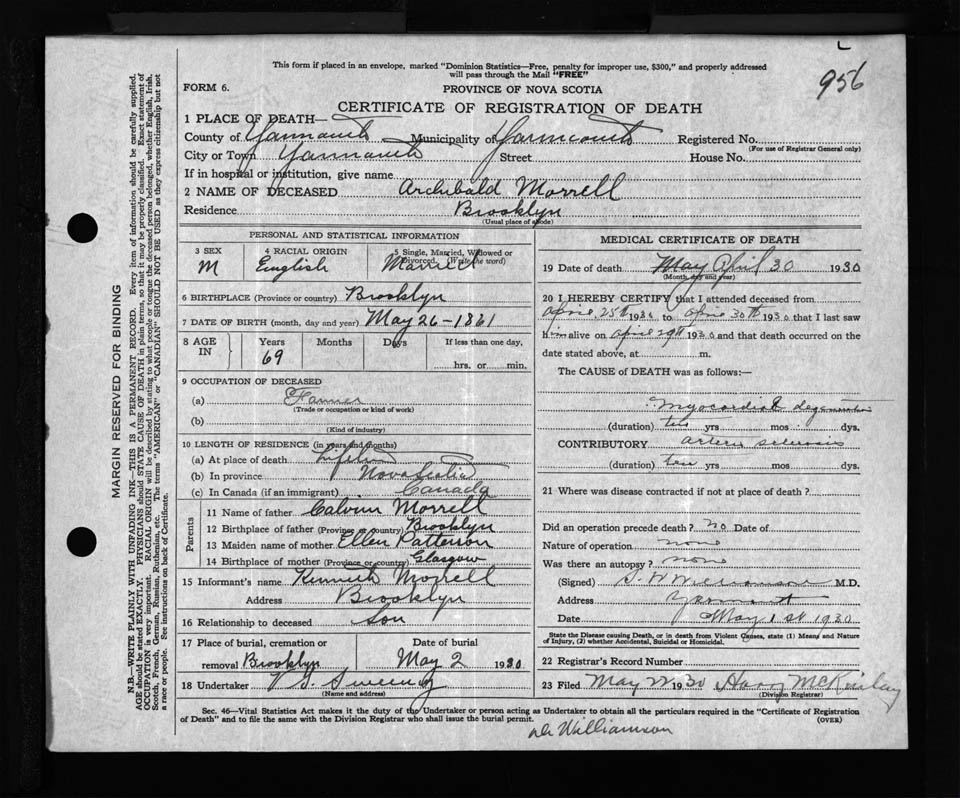 This form if placed in an envelope, marked "Dominion Statistics—Free, penalty for improper use, $300," and properly addressed
will pass through the Mail "FREE"
956
FORM 6.
PROVINCE OF NOVA SCOTIA
CERTIFICATE OF REGISTRATION OF DEATH
1 PLACE OF DEATH—
County of Yarmouth Municipality of Yarmouth Registered No.
(For use of Registrar General only)
City or Town Yarmouth Street House No.
If in hospital or institution, give name
2 NAME OF DECEASED Archibald Morrell
Residence Brooklyn
(Usual place of abode)
PERSONAL AND STATISTICAL INFORMATION
3 SEX 4 RACIAL ORIGIN 5 Single, Married, Widowed or
Divorced. (Write the word)
M English Married
6 BIRTHPLACE (Province or country) Brooklyn
7 DATE OF BIRTH (month, day and year) May 26-1861
8 AGE IN Years Months Days If less than one day,
69 hrs. or min.
9 OCCUPATION OF DECEASED
(a) Farmer
(Trade or occupation or kind of work)
(b)
(Kind of industry)
10 LENGTH OF RESIDENCE (in years and months)
(a) At place of death
(b) In province Nova Scotia
(c) In Canada (if an immigrant) Canada
Parents
11 Name of father Calvin Morrell
12 Birthplace of father (Province or country) Brooklyn
13 Maiden name of mother Ellen Patterson
14 Birthplace of mother (Province or country) Glasgow
15 Informant's name Kenneth Morrell
Address Brooklyn
16 Relationship to deceased Son
17 Place of burial, cremation or Date of burial
removal Brooklyn May 2 1930
18 Undertaker V. S. Sweeney
(Name and address)
MEDICAL CERTIFICATE OF DEATH
19 Date of death May April 30 1930
(Month, day and year)
20 I HEREBY CERTIFY that I attended deceased from
April 25th 1930 to April 30th 1930 that I last saw
him alive on April 29th 1930 and that death occurred on the
date stated above, at m.
The CAUSE of DEATH was as follows:—
Myocardial degeneration
(duration) ten yrs mos. dys.
CONTRIBUTORY arterio sclerosis
(duration) ten yrs mos. dys.
21 Where was disease contracted if not at place of death?
Did an operation precede death? no Date of
Nature of operation none
Was there an autopsy? none
(Signed) S. W. Williamson M.D.
Address Yarmouth
Date May 1st 1930
State the Disease causing Death, or in death from Violent Causes, state (1) Means and Nature
of Injury, (2) whether Accidental, Suicidal or Homicidal.
22 Registrar's Record Number
23 Filed May 2 1930 Harry McKinlay
(Division Registrar)
Sec. 46—Vital Statistics Act makes it the duty of the Undertaker or person acting as Undertaker to obtain all the particulars required in the "Certificate of Registration
of Death" and to file the same with the Division Registrar who shall issue the burial permit. (OVER)
Dr Williamson
MARGIN RESERVED FOR BINDING
N.B.—WRITE PLAINLY WITH UNFADING INK—THIS IS A PERMANENT RECORD. Every item of information should be carefully supplied.
AGE should be stated EXACTLY. PHYSICIANS should STATE CAUSE OF DEATH in plain terms, so that it may be properly classified. Exact statement of
OCCUPATION is very important. RACIAL ORIGIN will be described by stating to what people or tongue the deceased person belonged, whether English, Irish,
Scotch, French, German, Russian, Ruthenian, etc. The terms "AMERICAN" or "CANADIAN" SHOULD NOT BE USED as they express citizenship but not
a race or people. See instructions on back of Certificate.